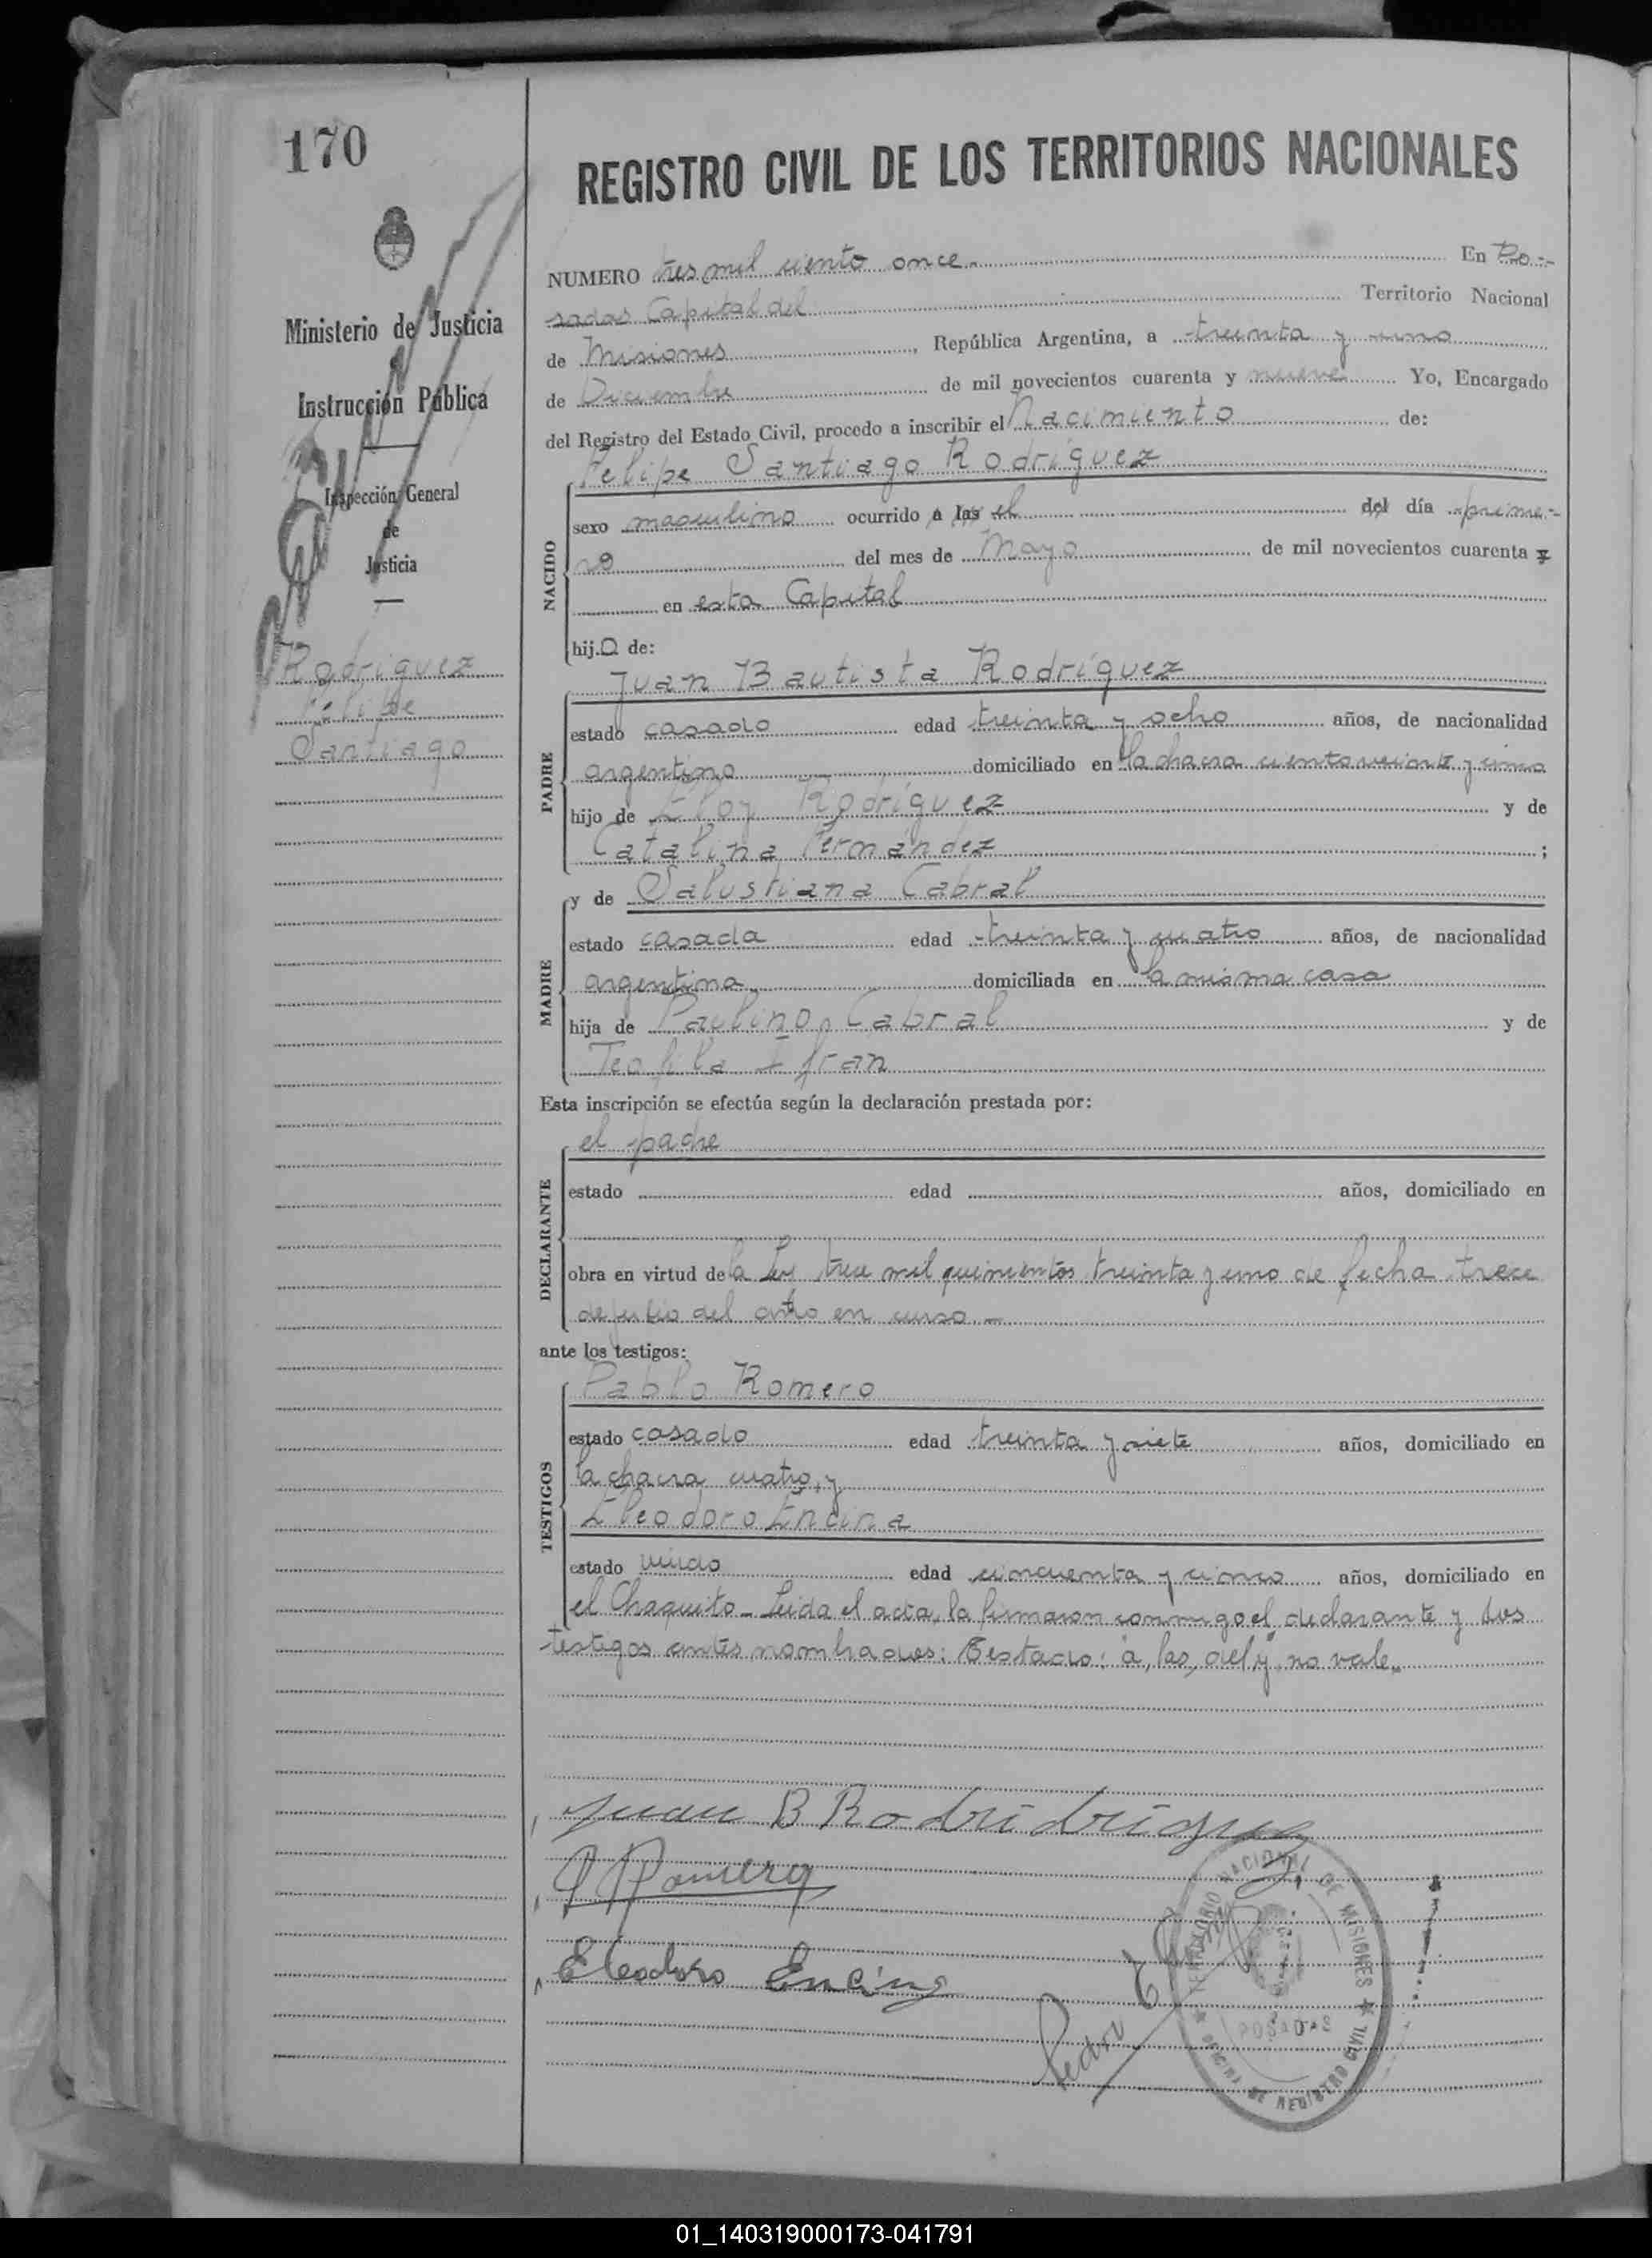 170
Ministerio de Justicia
e
Instrucción Pública
Inspección General
de
Justicia
Rodríguez
Felipe
Santiago
REGISTRO CIVIL DE LOS TERRITORIOS NACIONALES
NUMERO tres mil ciento once.- En Po-
sadas Capital del Territorio Nacional
de Misiones, República Argentina, a treinta y uno
de Diciembre de mil novecientos cuarenta y nueve Yo, Encargado
del Registro del Estado Civil, procedo a inscribir el Nacimiento de:
Felipe Santiago Rodríguez
NACIDO
sexo masculino ocurrido a las el del día prime-
ro del mes de Mayo de mil novecientos cuarenta y
en esta Capital
hijo de:
Juan Bautista Rodríguez
PADRE
estado casado edad treinta y ocho años, de nacionalidad
argentino domiciliado en la chacra ciento veinte y uno
hijo de Eloy Rodríguez y de
Catalina Fernández ;
y de Salustiana Cabral
MADRE
estado casada edad treinta y cuatro años, de nacionalidad
argentina domiciliada en la misma casa
hija de Paulino Cabral y de
Teofila Ifran
Esta inscripción se efectúa según la declaración prestada por:
el padre
DECLARANTE
estado edad años, domiciliado en
obra en virtud de la Ley trece mil quinientos treinta y uno de fecha trece
de julio del año en curso.-
ante los testigos:
Pablo Romero
TESTIGOS
estado casado edad treinta y siete años, domiciliado en
la chacra cuatro, y
Eleodoro Encina
estado viudo edad cincuenta y cinco años, domiciliado en
el Chaquito - Leida el acta, la firmaron conmigo el declarante y los
testigos antes nombrados: Testado: a, las, del y, no vale.
Juan B Rodridriguez
P Romero
Eleodoro Encina
Pedro
TERRITORIO NACIONAL DE MISIONES
POSADAS
OFICINA DE REGISTRO CIVIL
01_140319000173-041791